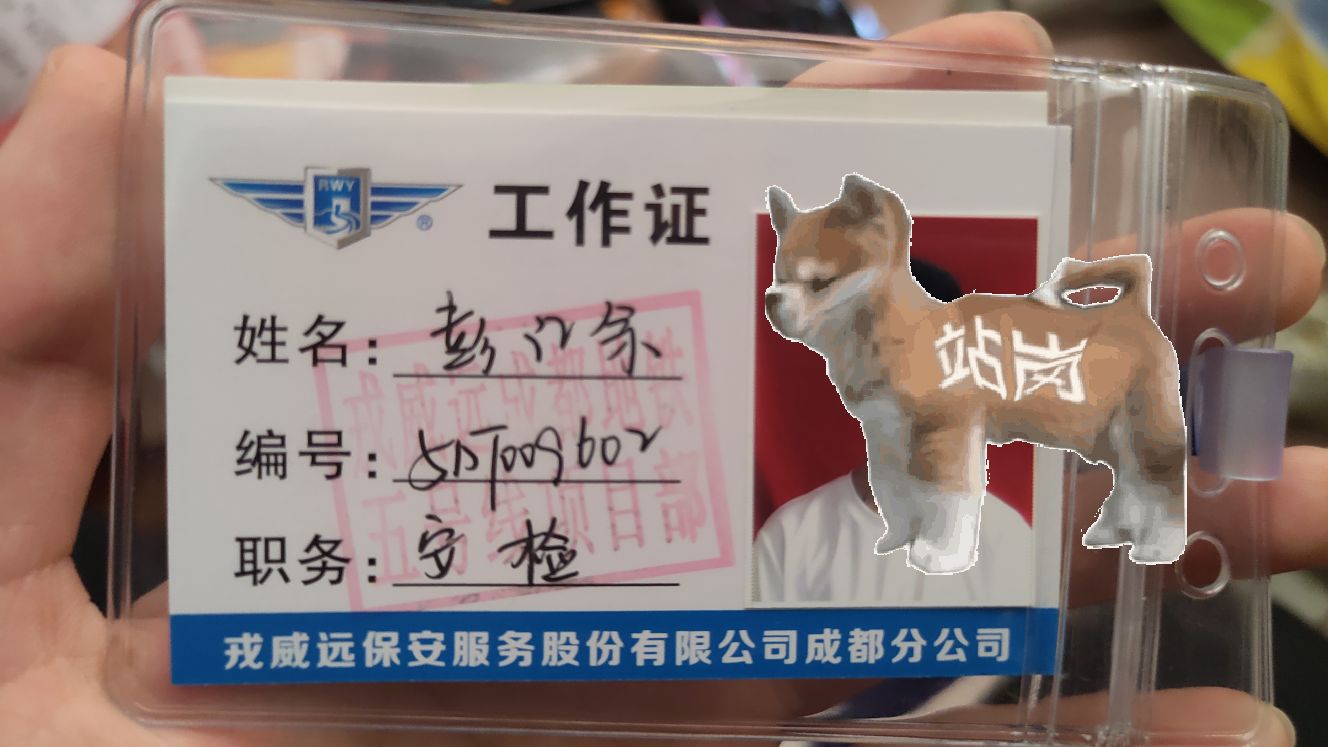 RWY
®
工作证
姓名：彭
编号：
职务：安检
戎威远成都地铁
五号线项目部
站岗
戎威远保安服务股份有限公司成都分公司